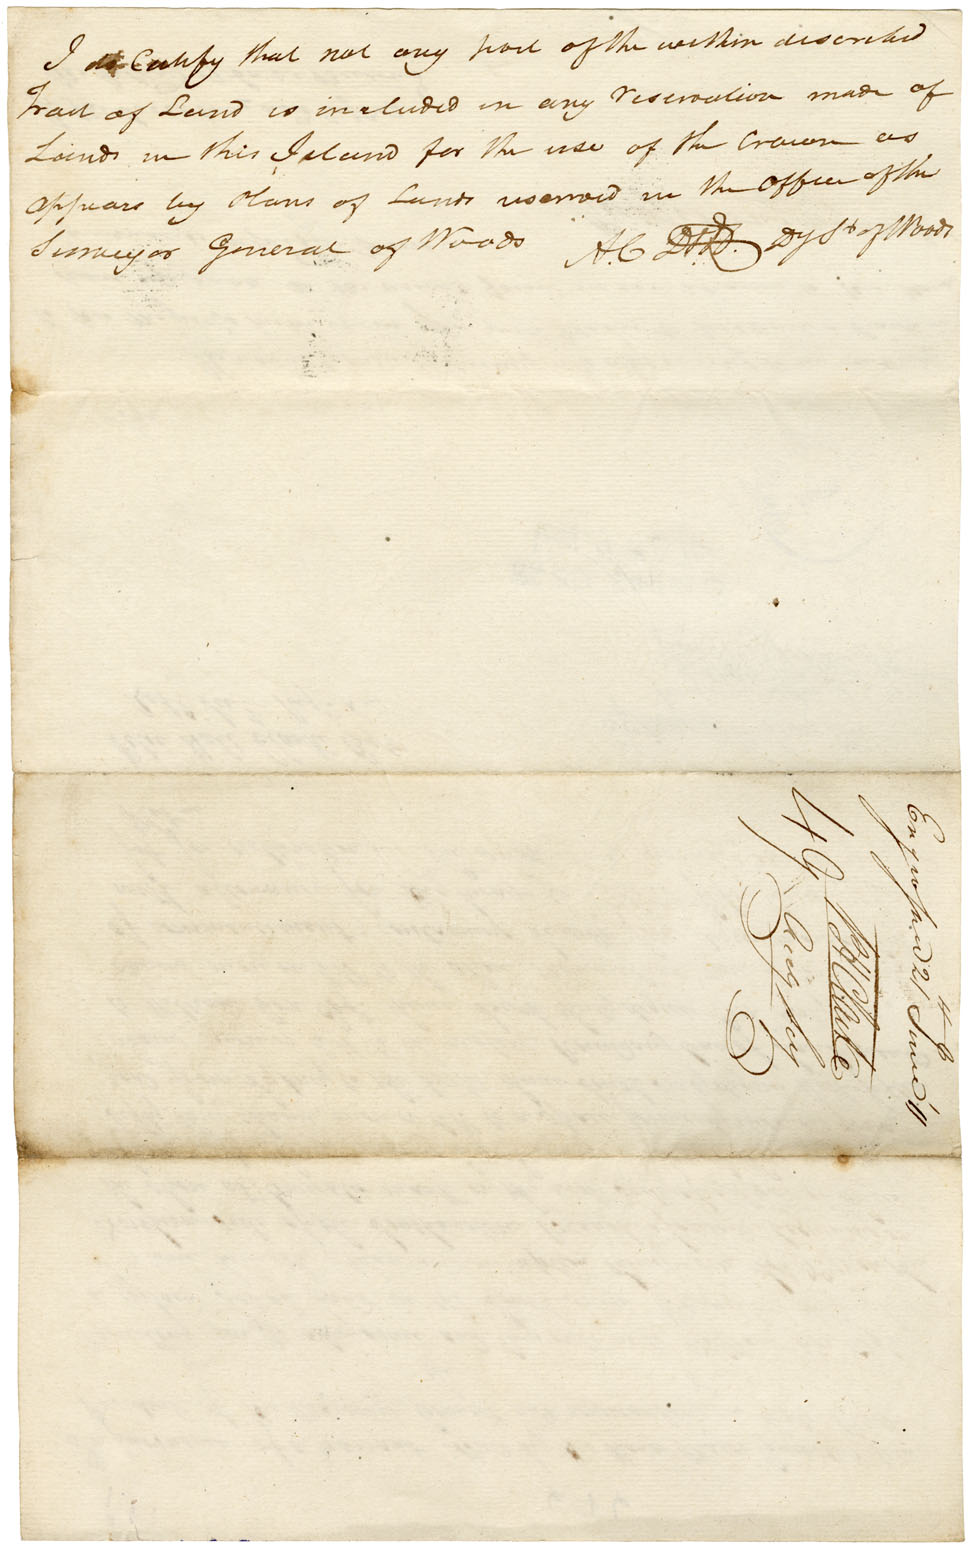 I do Certify that not any part of the within described
Tract of Land is included in any reservation made of
Lands in this Island for the use of the Crown as
appears by Plans of Lands reserved in the Office of the
Surveyor General of Woods A.C. Dodd. Dy Sr of Woods
Engrossed 21 June '11
49